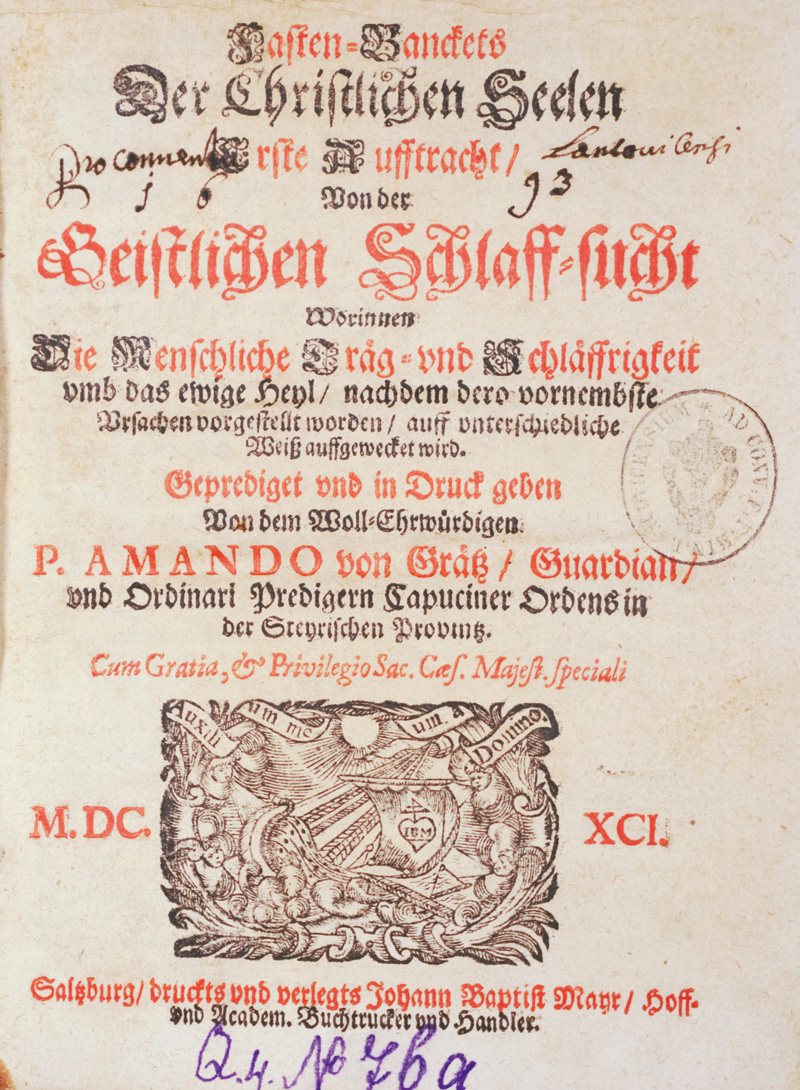 Fasten-Banckets
Der Christlichen Seelen
Erste Aufftracht /
Pro conventu
1693
Von der
Geistlichen Schlaff-sucht
Worinnen
Die Menschliche Träg- vnd Schläffrigkeit
vmb das ewige Heyl / nachdem dero vornembste
Vrsachen vorgestellt worden / auff vnterschiedliche
Weiß auffgewecket wird.
Geprediget vnd in Druck geben
Von dem Woll-Ehrwürdigen
P. AMANDO von Grätz / Guardian /
vnd Ordinari Predigern Capuciner Ordens in
der Steyrischen Provintz.
Cum Gratia, & Privilegio Sac. Cæs. Majest. speciali
Auxilium meum. a Domino.
IBM
M.DC. XCI.
Saltzburg / druckts vnd verlegts Johann Baptist Mayr / Hoff-
vnd Academ. Buchtrucker vnd Handler.
Q.4. No 76a